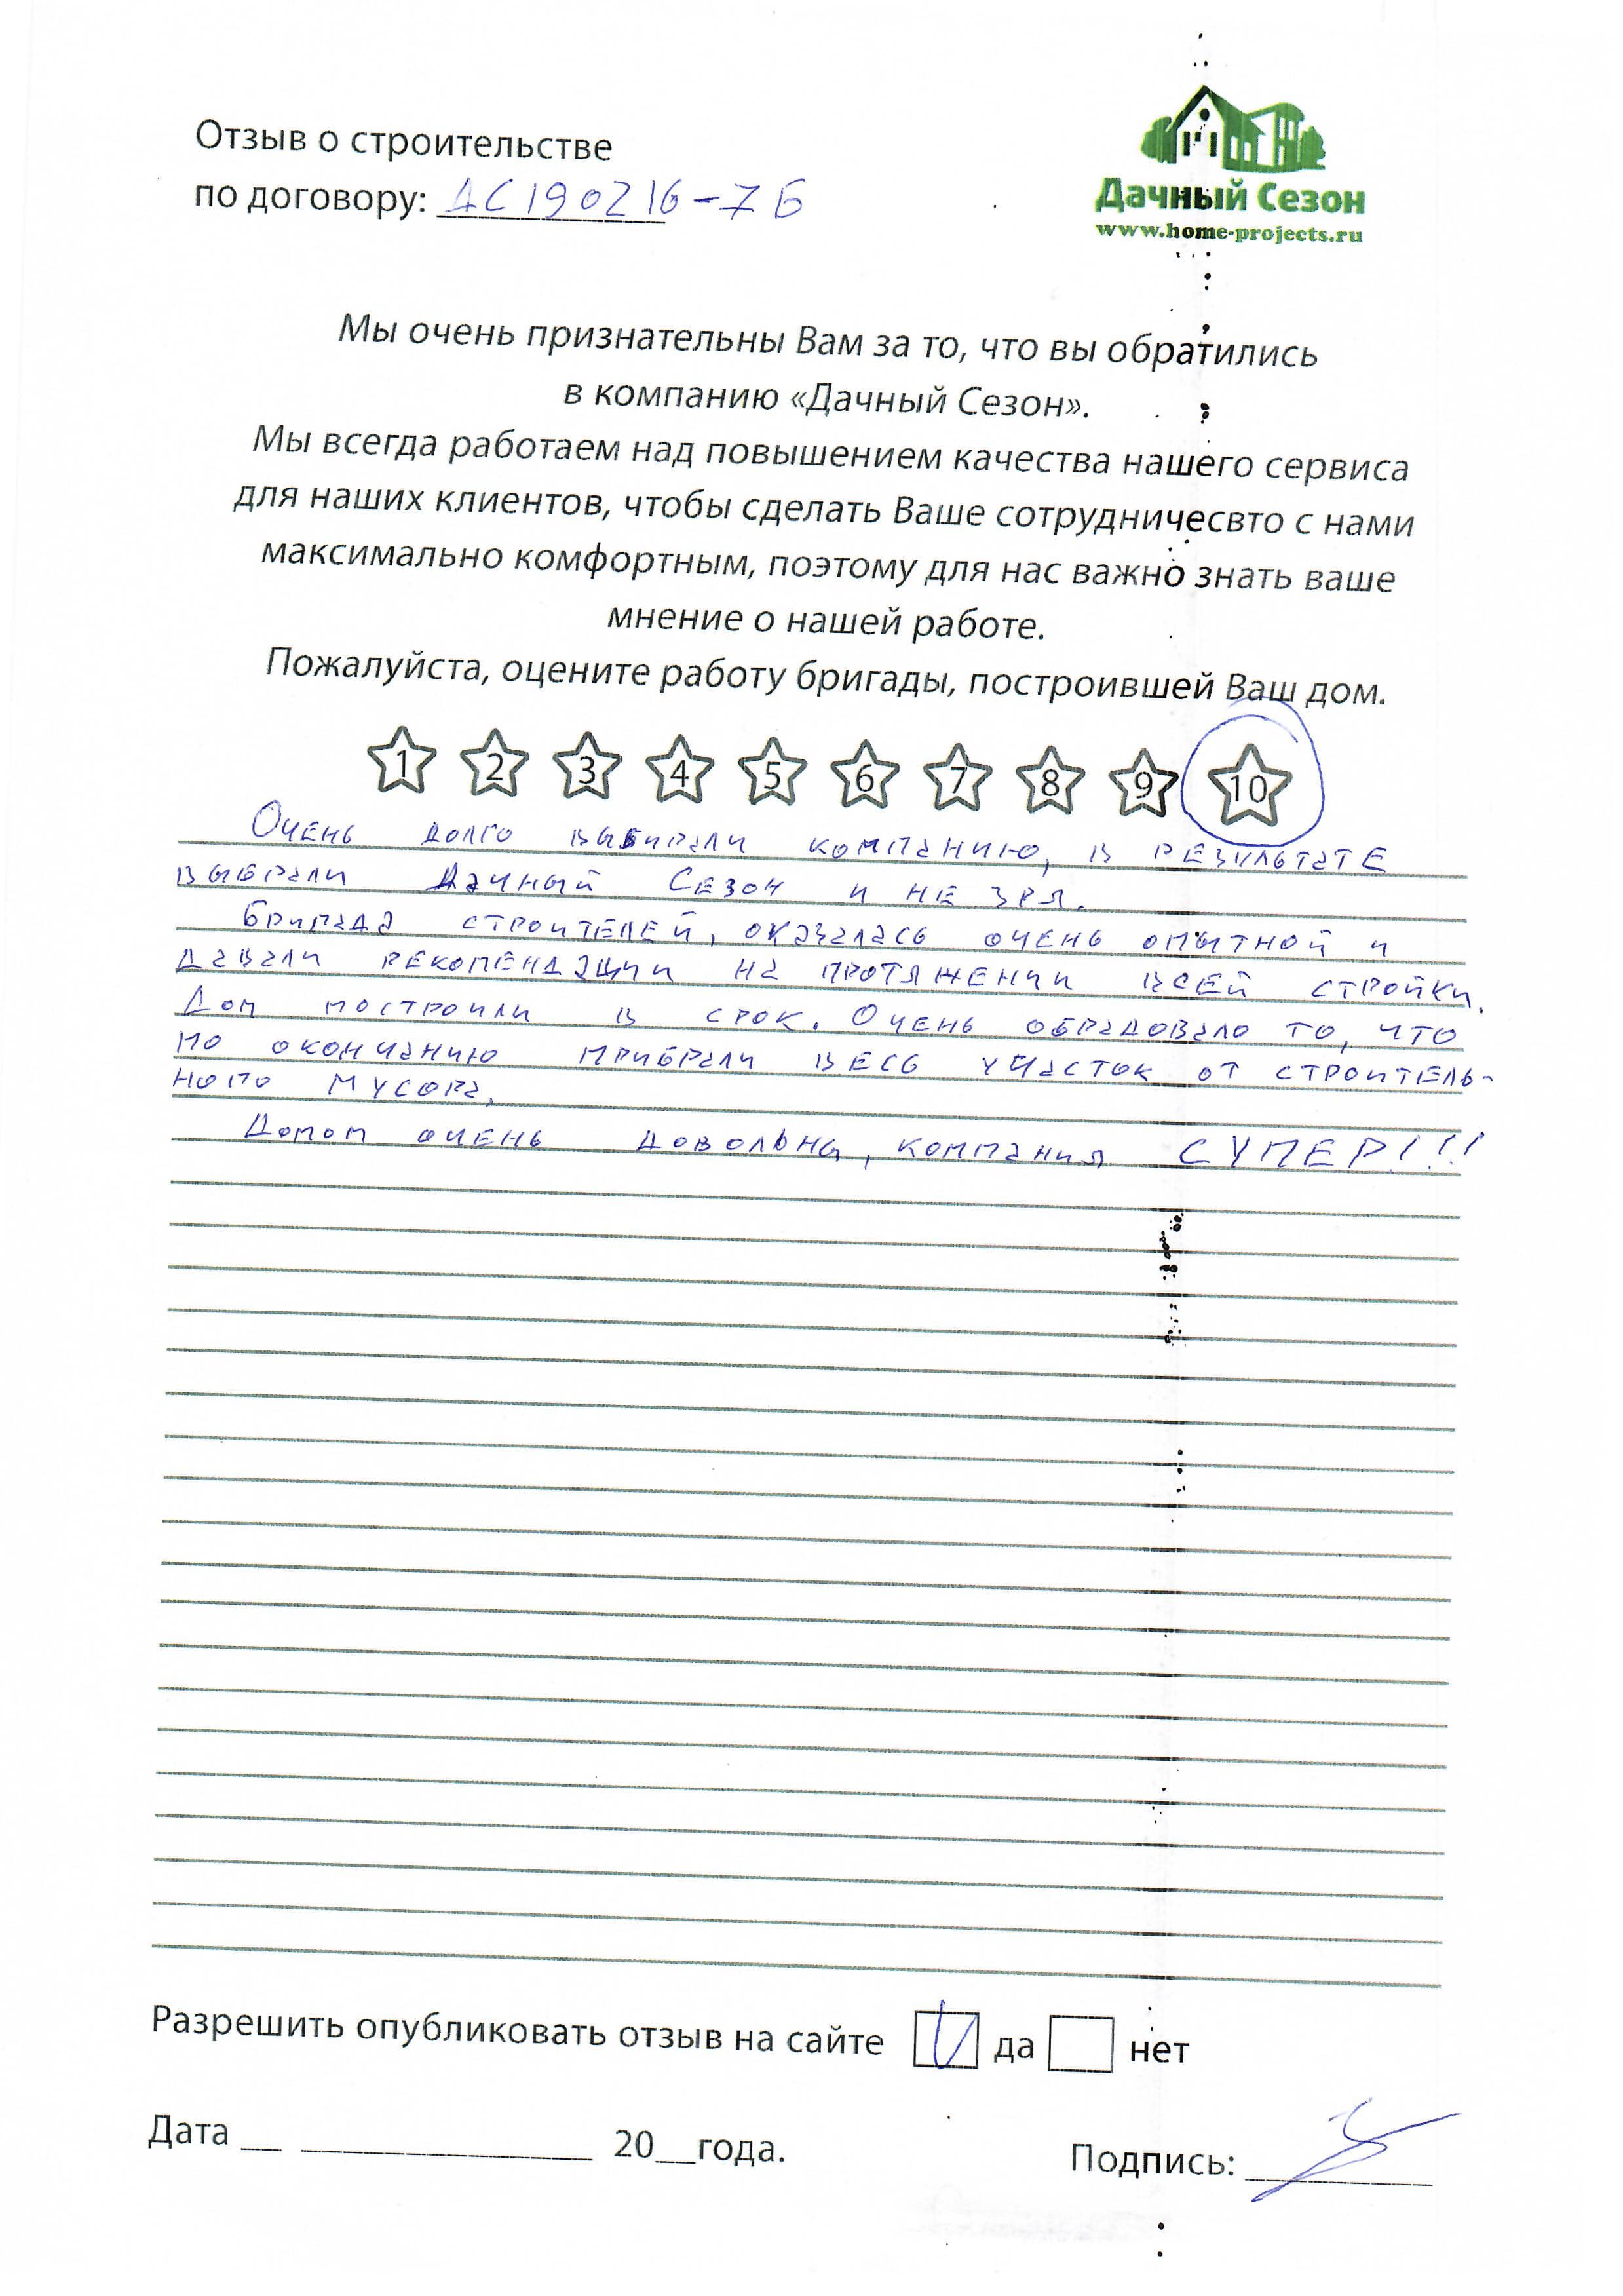 Отзыв о строительстве
по договору: ДС190216-7Б
Дачный Сезон
www.home-projects.ru
Мы очень признательны Вам за то, что вы обратились
в компанию «Дачный Сезон».
Мы всегда работаем над повышением качества нашего сервиса
для наших клиентов, чтобы сделать Ваше сотрудничесвто с нами
максимально комфортным, поэтому для нас важно знать ваше
мнение о нашей работе.
Пожалуйста, оцените работу бригады, построившей Ваш дом.
1 2 3 4 5 6 7 8 9 10
Очень долго выбирали компанию, в результате
выбрали Дачный Сезон и не зря.
Бригада строителей, оказалась очень опытной и
давали рекомендации на протяжении всей стройки.
Дом построили в срок. Очень обрадовало то, что
по окончанию прибрали весь участок от строитель-
ного мусора.
Домом очень довольны, компания СУПЕР!!!
Разрешить опубликовать отзыв на сайте да нет
Дата __ ______________ 20__года. Подпись: _________